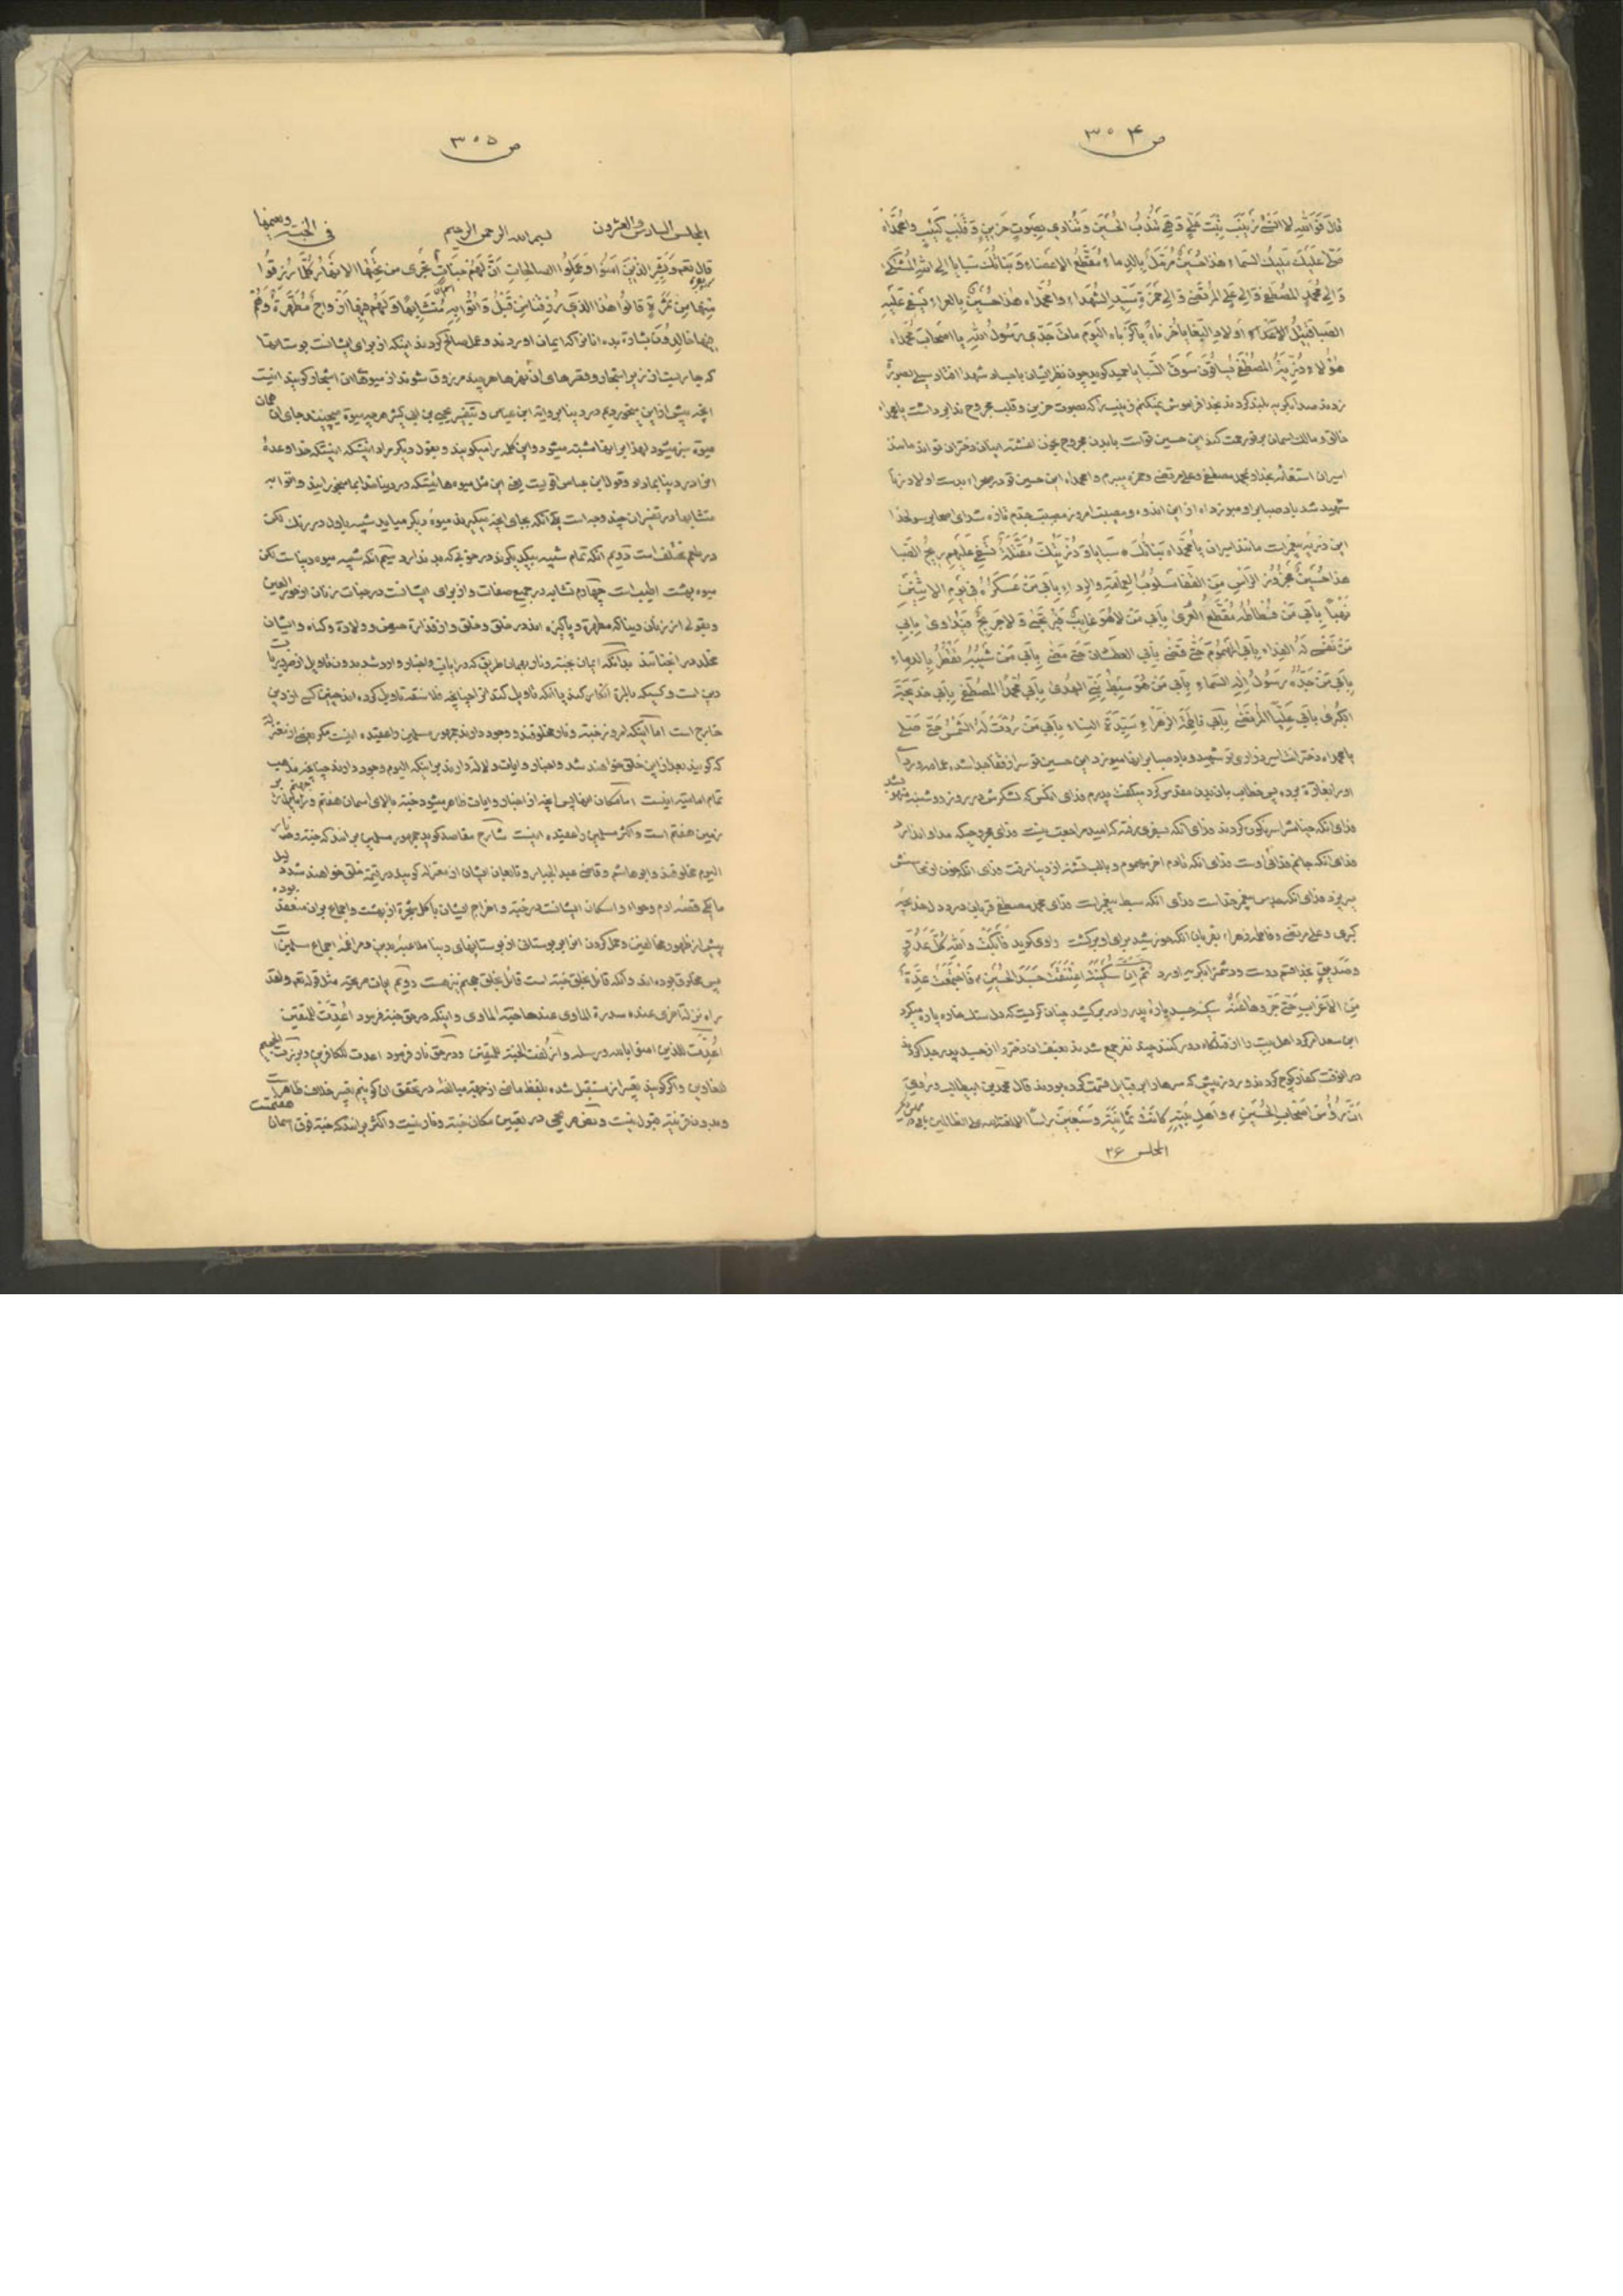 ص ٣٠٤
قال فوالله لا انسی زینب بنت علی و هی تندب الحسین و تنادی بصوت حزین و قلب کئیب وا محمداه
صلی علیک ملیک السماء هذا حسین مرمل بالدماء مقطع الاعضاء و بناتک سبایا الی الله المشتکی
و الی محمد المصطفی و الی علی المرتضی و الی حمزة سید الشهداء وا محمداه هذا حسین بالعراء یسفی علیه
الصبا قتیل اولاد البغایا یا حزناه یا کرباه الیوم مات جدی رسول الله یا اصحاب محمداه
هؤلاء ذریة المصطفی یساقون سوق السبایا حمید کوید چون نظر ایشان باجساد شهدا افتاد
زدند صدا بکریه بلند کردند بخدا فراموش نمیکنم زینب را که بصوت حزین و قلب مجروح ندا بر داشت یا محمداه
خالق و مالک اسمان بر تو رحمت کند این حسین تو است با بدن مجروح بخون اغشته اینان دختران تواند مانند
اسیران استغاثه بخدا و محمد مصطفی و علی مرتضی و حمزه میبرم وا محمداه این حسین تو در صحرا بدست اولاد زنا
شهید شد باد صبا بر او میوزد اه از این اندوه و مصیبت امروز مصیبت جدم تازه شد ای اصحاب رسولخدا
این ذریه پیغمبرات مانند اسیران یا محمداه بناتک سبایا و ذریتک مقتلة تسفی علیهم ریح الصبا
هذا حسین مجزوز الراس من القفا مسلوب العمامة و الرداء بابی من عسکره فی یوم الاثنین
نهبا بابی من فسطاطه مقطع العری بابی من لا هو غایب فیرتجی و لا جریح فیداوی بابی
من نفسی له الفداء بابی المهموم حتی قضی بابی العطشان حتی مضی بابی من شیبه یقطر بالدماء
بابی من جده رسول اله السماء بابی من هو سبط نبی الهدی بابی محمد المصطفی بابی خدیجة
الکبری بابی علیا المرتضی بابی فاطمة الزهراء سیدة النساء بابی من ردت له الشمس حتی صلی
یا محمداه دخترانت اسیر و ذراری تو شهید و باد صبا بر انها میوزد این حسین تو سر از قفا جدا شده عمامه و ردا
او را بغارت برده پس خطاب بان بدن مقدس کرد میکفت پدرم فدای انکس که لشکرش در روز دوشنبه منهوب شد
فدای انکه خیامش را سرنکون کردند فدای انکه نه بسفری رفته که امید مراجعت نیست فدای مجروحیکه مداوا ندارد
فدای انکه جانم فدای اوست فدای انکه تا دم اخر مهموم و با لب تشنه از دنیا رفت فدای انکه خون از محاسنش
میریزد فدای انکه جدش پیغمبر خداست فدای انکه سبط پیغمبرات فدای محمد مصطفی قربان خدیجه
کبری و علی مرتضی و فاطمه زهراء بقربان انکه خورشید برای او برکشت راوی کوید فابکت و الله کل عدو
و صدیق بخدا قسم دوست و دشمن را بکریه اورد ثم ان سکینة اعتنقت جسد الحسین فاجتمعت عدة
من الاعراب حتی جروها عنه سکینه جسد پاره پدر را در بر کشید چنان کریست که دل سنک خاره پاره میکرد
ابن سعد امر کرد اهل بیت را از قتلکاه دور کنند چند نفر جمع شدند بعنف ان دختر را از جسد پدر جدا کردند
در انوقت کفار کوچ کردند و روز پیش که سرها را بر قبایل قسمت کرده بودند قال محمد بن ابیطالب و روی
ان رؤس اصحاب الحسین و اهل بیته کانت ثمانیة و سبعین راسا
المجلس ٢۶
ص ٣٠٥
المجلس السادس و العشرون بسم الله الرحمن الرحیم فی الجنة و نعیمها
قال تعالی و بشر الذین امنوا و عملوا الصالحات ان لهم جنات تجری من تحتها الانهار کلما رزقوا
منها من ثمرة قالوا هذا الذی رزقنا من قبل و اتوا به متشابها و لهم فیها ازواج مطهرة و هم
فیها خالدون بشارت بده انانرا که ایمان اوردند و عمل صالح کردند اینکه از برای ایشانست بوستانها
که جاریست از زیر اشجار و قصرهای ان نهرها هر چند مرزوق شوند از میوهای ان اشجار کویند اینست
انچه پیش از این میخوردیم در دنیا بروایة ابن عباس و بتفسیر یحیی بن ابی کثیر هر چه میوه میچینند جای ان همان
میوه سبز میشود لهذا بر انها مشتبه میشود و این کلمه را میکویند و بقول دیکر مراد اینستکه خدا وعدهٔ
انرا در دنیا بما داد و قول ابن عباس اقویست یعنی این مثل میوه هائیستکه در دنیا خدا بما میخورانید و اتوا به
متشابها در تفسیر ان چند وجه است یکی انکه بجای انچه میکیرند میوهٔ دیکر میاید شبیه باول در رنک لکن
در طعم مختلف است دویم انکه تمام شبیه بیکدیکرند در خوبی که بد ندارد سیم انکه شبیه میوه دنیاست لکن
میوه بهشت اطیب است چهارم تشابه در جمیع صفات و از برای ایشانست در جنات زنان از حور العین
و بقولی از زنان دنیا که مطهره و پاکیزه اند در خلق و خلق و از قذارت حیض و ولادت و کناه و ایشان
مخلد در انجا میباشند بدانکه ایمان بجنت و نار بهمان طریق که در ایات و اخبار وارد شده بدون تاویل از ضروریات
دین است و کسیکه بالمره انکار کند یا انکه تاویل کند انرا چنانچه فلاسفه تاویل کرده اند چنین کسی از دین
خارج است اما اینکه امروز جنت و نار مخلوقند و وجود دارند جمهور مسلمین را عقیده اینست مکر بعضی از معتزله
که کویند بعد از این خلق خواهند شد و اخبار و ایات دلالت دارند بر اینکه الیوم وجود دارند چنانچه مذهب
تمام امامیه اینست اما مکان انها پس انچه از اخبار و ایات ظاهر میشود جنت بالای اسمان هفتم و جهنم در
زمین هفتم است و اکثر مسلمین را عقیده اینست شارح مقاصد کوید جمهور مسلمین برانند که جنت و نار
الیوم مخلوقند و ابو هاشم و قاضی عبد الجبار و تابعان ایشان از معتزله کویند در قیامت خلق خواهند شد دلیل
ما یکی قصهٔ ادم و حواء و اسکان ایشانست در جنت و اخراج ایشان باکل شجره از بهشت و اجماع بر ان منعقد بوده
پیش از ظهور مخالفین و حمل کردن انرا بر بوستانی از بوستانهای دنیا ملاعبه بدین و مراغمهٔ اجماع مسلمین است
پس مخلوق بوده اند و انکه قائل بخلق جنت است قائل بخلق جهنم نیز هست دویم ایات صریحه مثل قوله تعالی و لقد
راه نزلة اخری عند سدرة المنتهی عندها جنة الماوی و اینکه در حق جنت فرمود اعدت للمتقین
اعدت للذین امنوا بالله و رسله و ازلفت الجنة للمتقین و در حق نار فرمود اعدت للکافرین و برزت الجحیم
للغاوین و اکر کویند تعبیر از مستقبل شده بلفظ ماضی از جهة مبالغه در تحقق ان کوئیم تعبیر خلاف ظاهر است
و بدون قرینه مقبول نیست و نص صریحی در تعیین مکان جنت و نار نیست و اکثر برانند که جنت فوق اسمان هفتمست